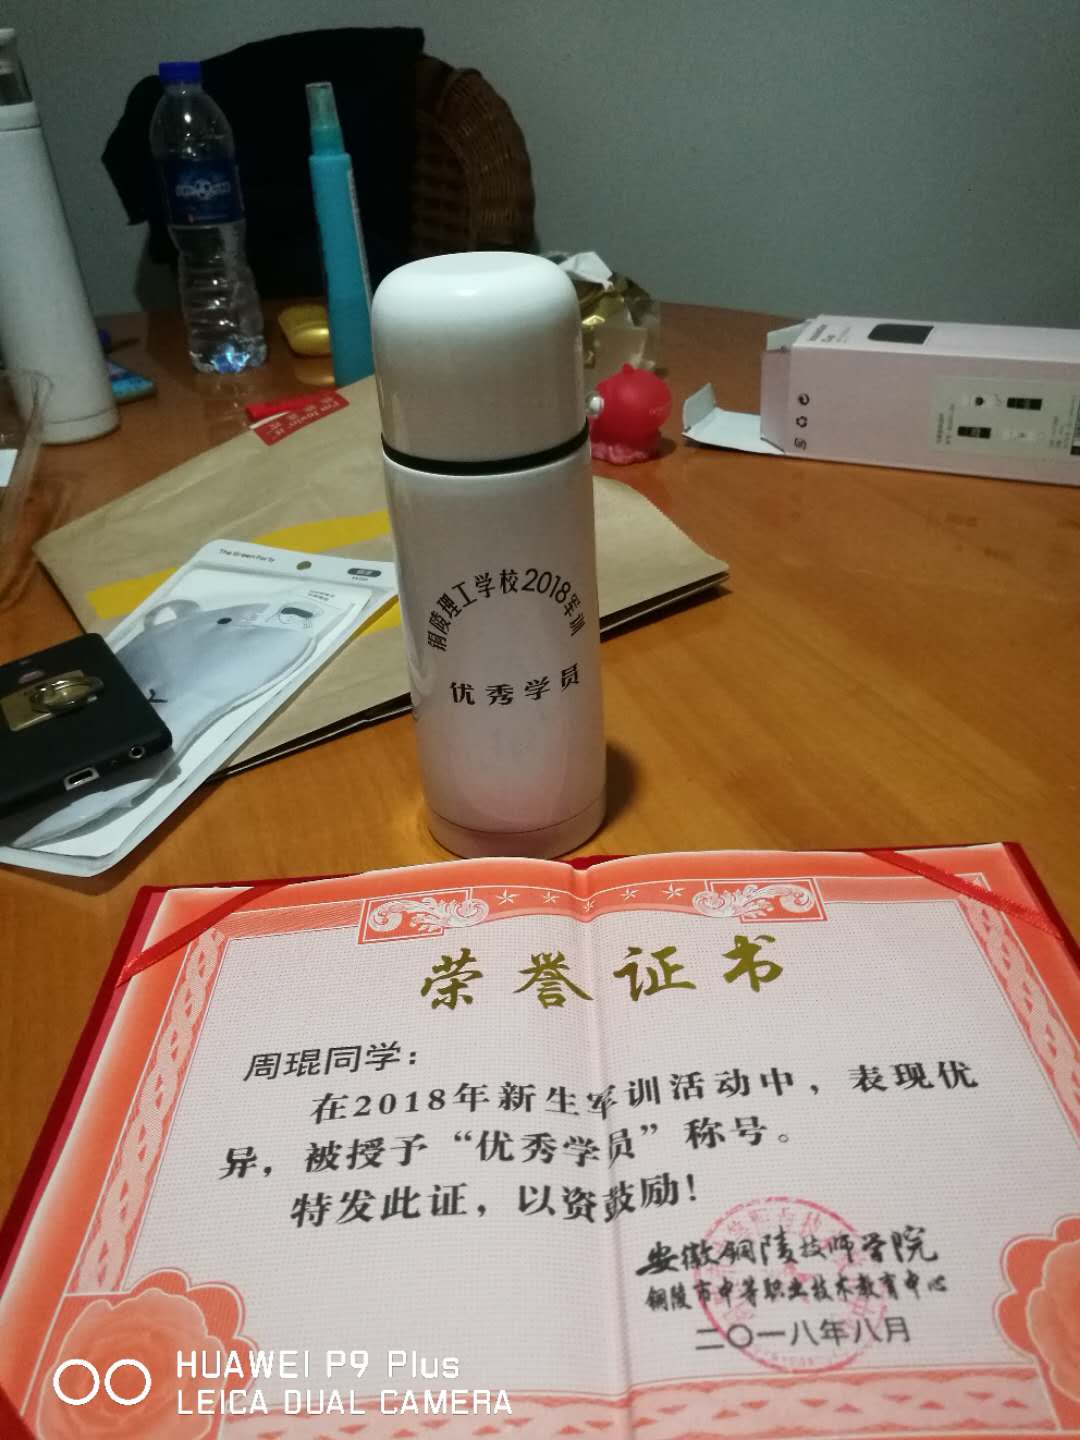 The Green Party
铜陵理工学校2018军训
优秀学员
荣誉证书
周琨同学：
在2018年新生军训活动中，表现优
异，被授予“优秀学员”称号。
特发此证，以资鼓励！
安徽铜陵技师学院
铜陵市中等职业技术教育中心
二〇一八年八月
HUAWEI P9 Plus
LEICA DUAL CAMERA